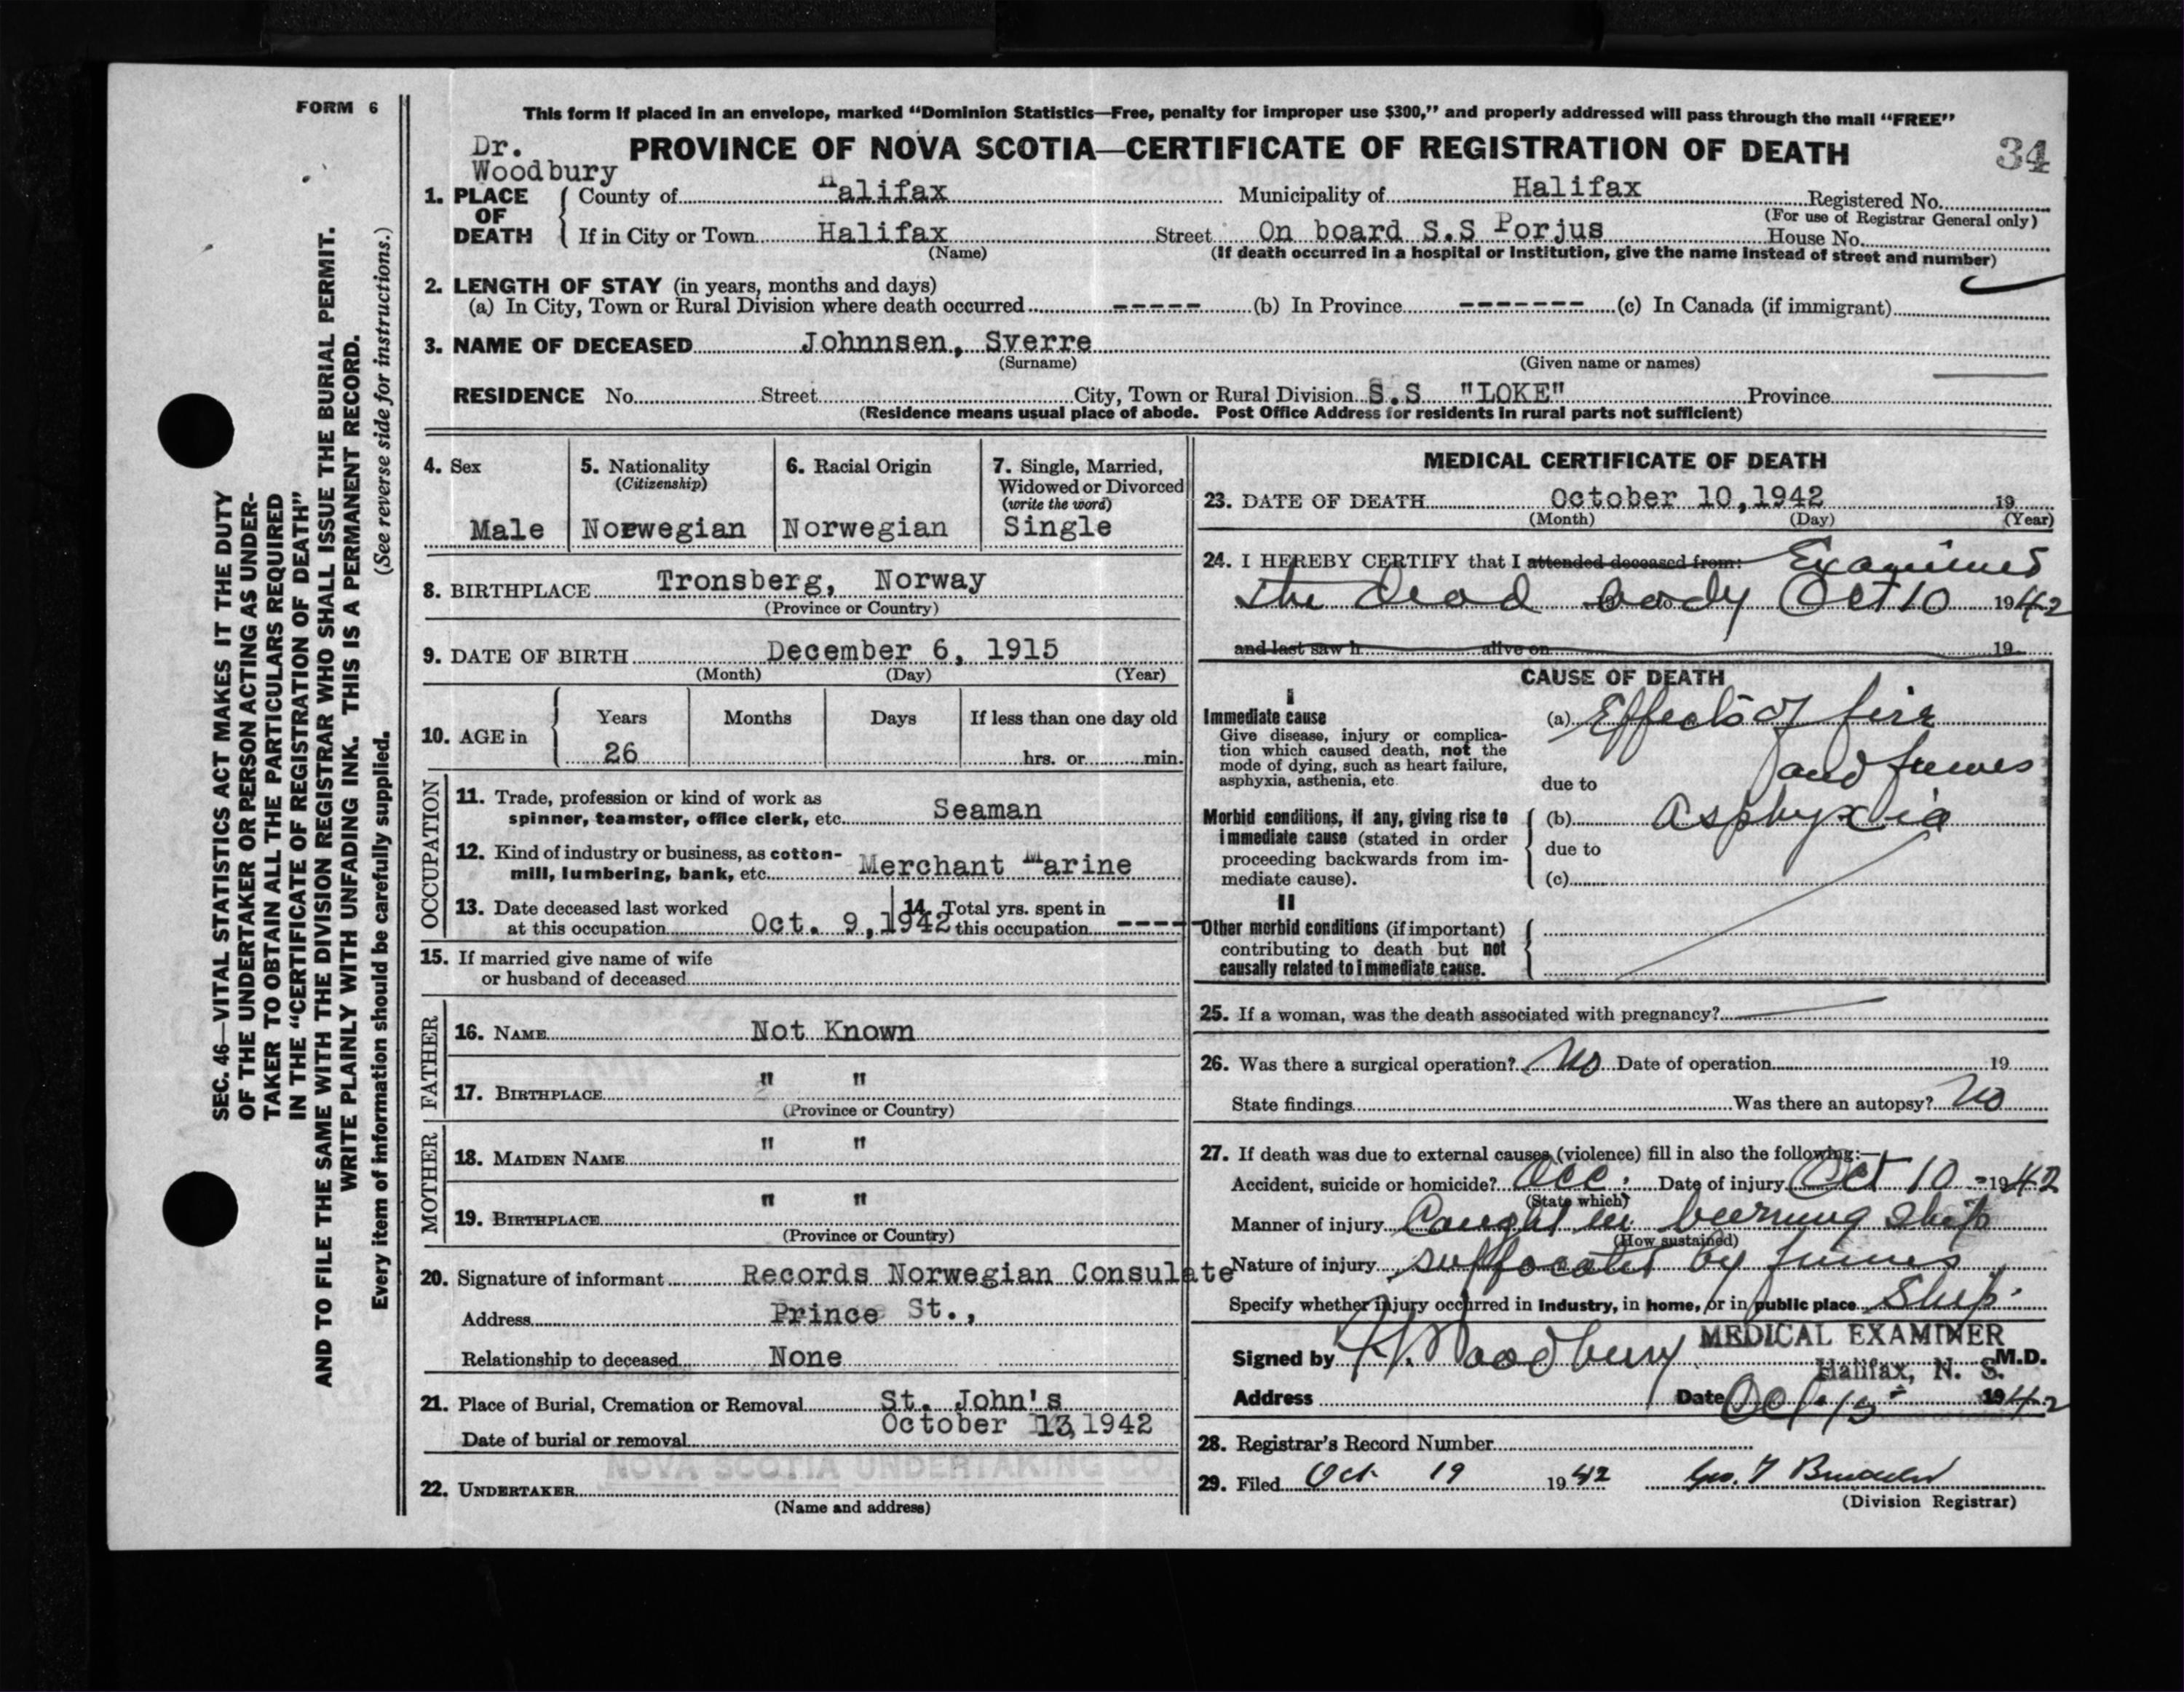 FORM 6
This form if placed in an envelope, marked “Dominion Statistics—Free, penalty for improper use $300,” and properly addressed will pass through the mail “FREE”
Dr.
Woodbury
PROVINCE OF NOVA SCOTIA—CERTIFICATE OF REGISTRATION OF DEATH
34
1. PLACE OF DEATH
County of Halifax Municipality of Halifax Registered No.
(For use of Registrar General only)
If in City or Town Halifax Street On board S.S Porjus House No.
(Name) (If death occurred in a hospital or institution, give the name instead of street and number)
2. LENGTH OF STAY (in years, months and days)
(a) In City, Town or Rural Division where death occurred ----- (b) In Province ------- (c) In Canada (if immigrant)
3. NAME OF DECEASED Johnnsen, Sverre
(Surname) (Given name or names)
RESIDENCE No. Street City, Town or Rural Division S.S "LOKE" Province
(Residence means usual place of abode. Post Office Address for residents in rural parts not sufficient)
4. Sex
Male
5. Nationality
(Citizenship)
Norwegian
6. Racial Origin
Norwegian
7. Single, Married,
Widowed or Divorced
(write the word)
Single
8. BIRTHPLACE Tronsberg, Norway
(Province or Country)
9. DATE OF BIRTH December 6, 1915
(Month) (Day) (Year)
10. AGE in
Years Months Days If less than one day old
26 hrs. or min.
OCCUPATION
11. Trade, profession or kind of work as
spinner, teamster, office clerk, etc. Seaman
12. Kind of industry or business, as cotton-
mill, lumbering, bank, etc. Merchant Marine
13. Date deceased last worked
at this occupation Oct. 9, 1942
14. Total yrs. spent in
this occupation ----
15. If married give name of wife
or husband of deceased
FATHER
16. NAME Not Known
17. BIRTHPLACE " "
(Province or Country)
MOTHER
18. MAIDEN NAME " "
19. BIRTHPLACE " "
(Province or Country)
20. Signature of informant Records Norwegian Consulate
Address Prince St.,
Relationship to deceased None
21. Place of Burial, Cremation or Removal St. John's
Date of burial or removal October 13, 1942
NOVA SCOTIA UNDERTAKING CO
22. UNDERTAKER
(Name and address)
MEDICAL CERTIFICATE OF DEATH
23. DATE OF DEATH October 10, 1942 19
(Month) (Day) (Year)
24. I HEREBY CERTIFY that I attended deceased from: Examined
the dead body Oct 10 1942
and last saw h alive on 19
CAUSE OF DEATH
I
Immediate cause
Give disease, injury or complica-
tion which caused death, not the
mode of dying, such as heart failure,
asphyxia, asthenia, etc.
(a) Effects of fire
and fumes
due to
Morbid conditions, if any, giving rise to
immediate cause (stated in order
proceeding backwards from im-
mediate cause).
(b) Asphyxia
due to
(c)
II
Other morbid conditions (if important)
contributing to death but not
causally related to immediate cause.
25. If a woman, was the death associated with pregnancy?
26. Was there a surgical operation? No Date of operation 19
State findings Was there an autopsy? No
27. If death was due to external causes (violence) fill in also the following:—
Accident, suicide or homicide? Acc. Date of injury Oct 10 - 1942
(State which)
Manner of injury Caught in burning ship
(How sustained)
Nature of injury suffocated by fumes
Specify whether injury occurred in industry, in home, or in public place Ship.
MEDICAL EXAMINER
Signed by Woodbury M.D.
Halifax, N. S.
Address Date Oct 1942
28. Registrar's Record Number
29. Filed Oct 19 1942 Geo.
(Division Registrar)
SEC. 46—VITAL STATISTICS ACT MAKES IT THE DUTY
OF THE UNDERTAKER OR PERSON ACTING AS UNDER-
TAKER TO OBTAIN ALL THE PARTICULARS REQUIRED
IN THE “CERTIFICATE OF REGISTRATION OF DEATH”
AND TO FILE THE SAME WITH THE DIVISION REGISTRAR WHO SHALL ISSUE THE BURIAL PERMIT.
WRITE PLAINLY WITH UNFADING INK. THIS IS A PERMANENT RECORD.
Every item of information should be carefully supplied. (See reverse side for instructions.)